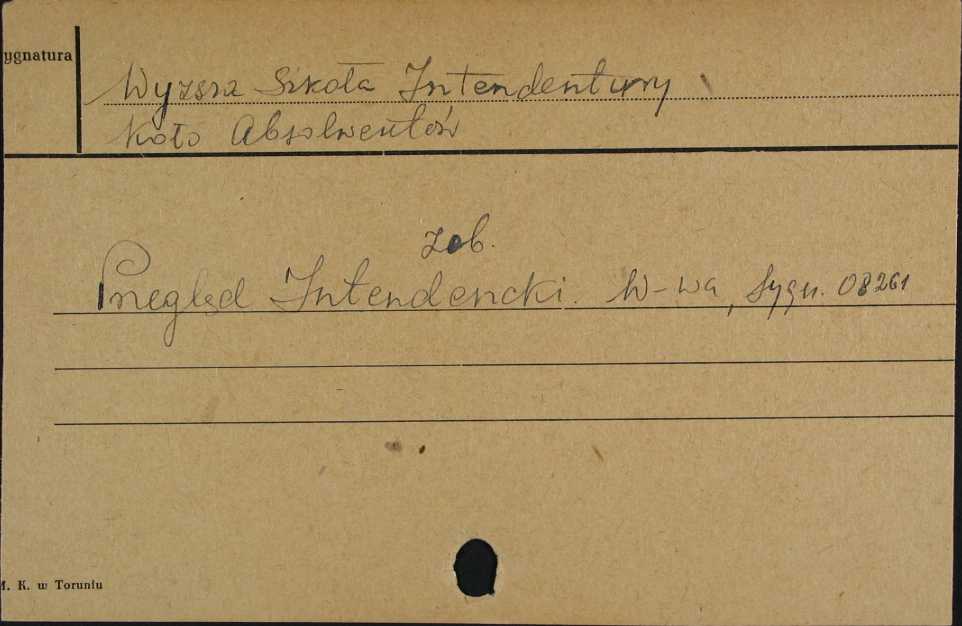 ygnatura
Wyzsza Szkoła Intendentury
Koło Absolwentów
zob.
Przegląd Intendencki. W-wa, Sygn. 08261
M. K. w Toruniu